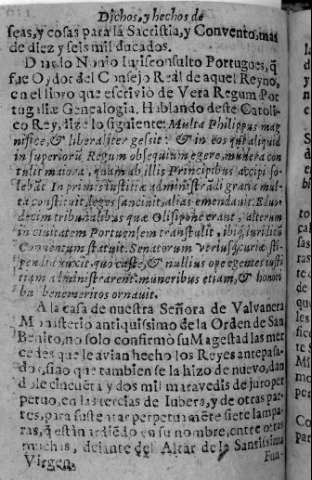 Dichos, y hechos de
seas, y cosas para la Sacristia, y Convento, mas
de diez y seis mil ducados.
Duardo Nonio Iurisconsulto Portugues, q̃
fue Oydor del Consejo Real de aquel Reyno,
en el libro que escrivió de Vera Regum Por
tugaliæ Genealogia. Hablando deste Catoli-
co Rey, dize lo siguiente: Multa Philippus mag
nifice, & liberaliter gessit: & in eos qui aliquid
in superiorũ Regum obsequium egere, munera con
tulit maiora, quam ab illis Principibus accipi so-
lebãt. In primis iustitiæ administrãdi gratia mul-
ta constituit, leges sancivit, alias emendavit. Ex duo-
decim tribunalibus quæ Olisipone erant, alterum
in civitatem Portuensem transtulit, ibiq́; iuridicũ
Conventum statuit. Senatorum utriusq́; curiæ sti-
pendia auxit, quo caste, & nullius ope egentes iusti
tiam administrarent: muneribus etiam, & honori
bus benemeritos ornavit.
A la casa de nuestra Señora de Valvanera
Monasterio antiquissimo de la Orden de San
Benito, no solo confirmó su Magestad las mer
cedes que le avian hecho los Reyes antepasa-
dos, sino que tambien se la hizo de nuevo, dan
dole cincuẽta y dos mil maravedis de juro per
petuo, en las tercias de Iubera, y de otras par-
tes, para sustentar perpetuamẽte siete lampa-
ras, q̃ estàn ardiẽdo en su nombre, entre otras
muchas, delante del Altar de la Santissima
Virgen.
Fun-